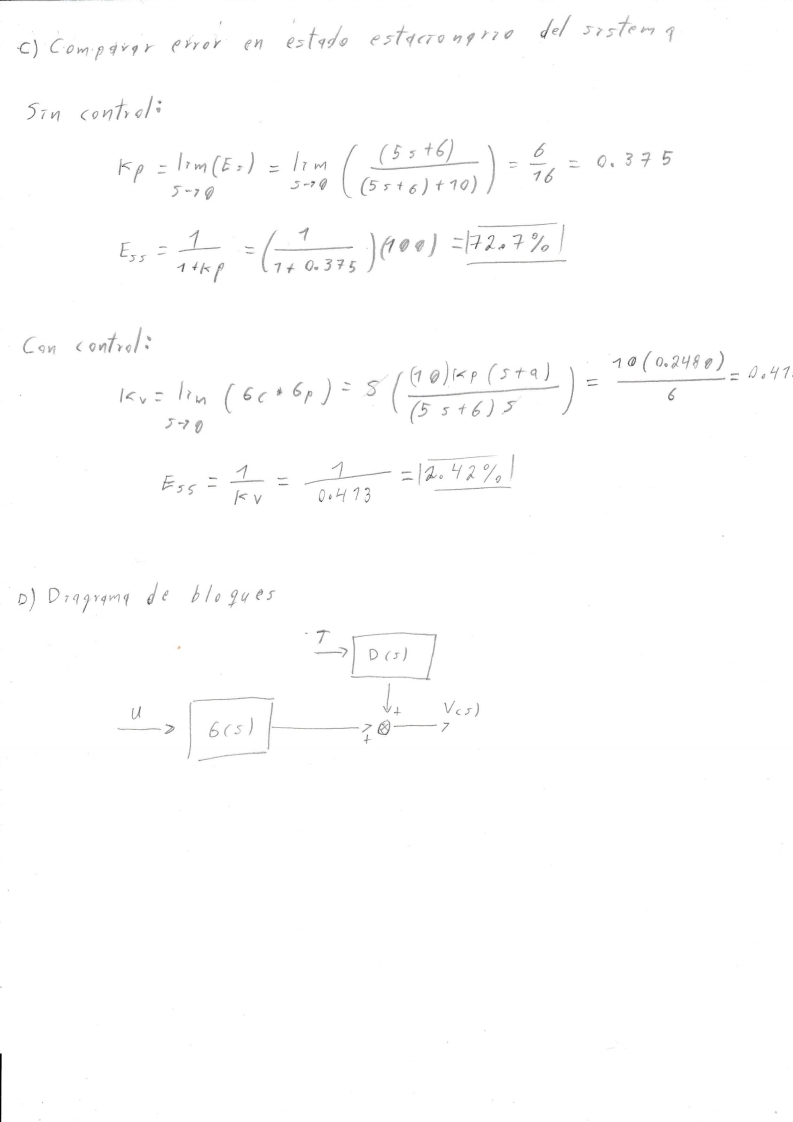 C) Comparar error en estado estacionario del sistema
Sin control:
Kp = lim(Es) = lim ( (5s+6) / ((5s+6)+10) ) = 6/16 = 0.375
s→0 s→0
Ess = 1/(1+Kp) = (1/(1+0.375))(100) = |72.7%|
Con control:
Kv = lim (Gc * Gp) = S ( (10)Kp(s+a) / (5s+6)s ) = 10(0.2480)/6 = 0.41
s→0
Ess = 1/Kv = 1/0.413 = |2.42%|
D) Diagrama de bloques
T
D(s)
U
G(s)
+
+
V(s)